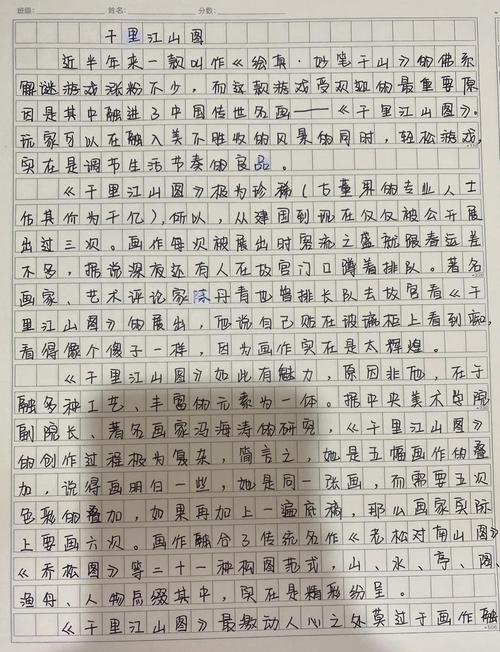 班级： 姓名： 分数：
千里江山图
近半年来一款叫作《绘真·妙笔千山》的佛系
解谜游戏涨粉不少，而这款游戏受欢迎的最重要原
因是其中融进了中国传世名画——《千里江山图》。
玩家可以在融入美不胜收的风景的同时，轻松游戏，
实在是调节生活节奏的良品。
《千里江山图》极为珍稀（古董界的专业人士
估其价为千亿），所以，从建国到现在仅仅被公开展
出过三次。画作每次被展出时客流之盛就跟春运差
不多，据说深夜还有人在故宫门口蹲着排队。著名
画家、艺术评论家陈丹青也曾排长队去故宫看《千
里江山图》的展出，他说自己贴在玻璃柜上看到痴，
看得像个傻子一样，因为画作实在是太辉煌。
《千里江山图》如此有魅力，原因非他，在于
融多种工艺、丰富的元素为一体。据中央美术学院
副院长、著名画家冯海涛的研究，《千里江山图》
的创作过程极为复杂，简言之，她是五幅画作的叠
加，说得画明白一些，她是同一张画，而需要五次
色彩的叠加，如果再加上一遍底稿，那么画家实际
上要画六次。画作融合了传统名作《老松对南山图》
《乔松图》等二十一种构图范式，山、水、亭、阁、
渔舟、人物点缀其中，实在是精彩纷呈。
《千里江山图》最激动人心之处莫过于画作融